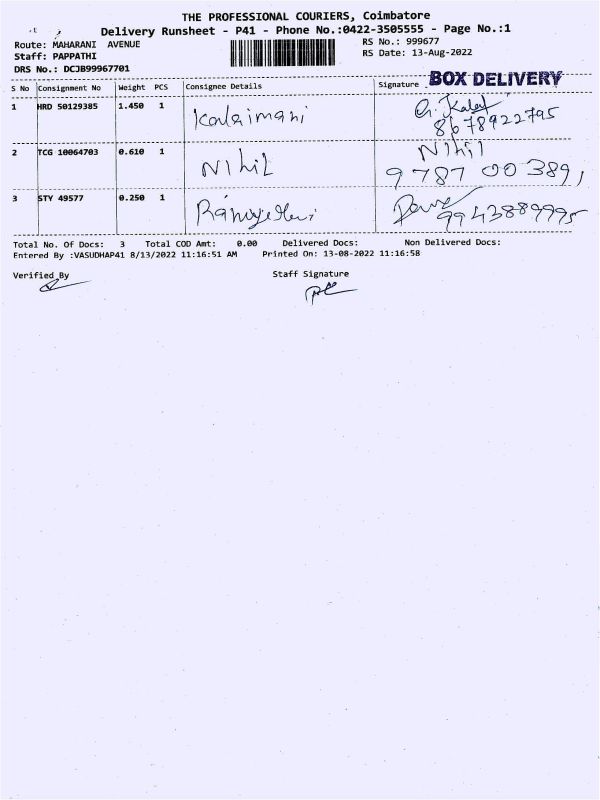 THE PROFESSIONAL COURIERS, Coimbatore
Delivery Runsheet - P41 - Phone No.:0422-3505555 - Page No.:1
Route: MAHARANI AVENUE
RS No.: 999677
Staff: PAPPATHI
RS Date: 13-Aug-2022
DRS No.: DCJB99967701
BOX DELIVERY
S No Consignment No Weight PCS Consignee Details Signature
1 HRD 50129385 1.450 1 Kalaimani G. Kalai
8678922795
2 TCG 10064703 0.610 1 Nihil Nihil
9787 00 3891
3 STY 49577 0.250 1
9943889995
Total No. Of Docs: 3 Total COD Amt: 0.00 Delivered Docs: Non Delivered Docs:
Entered By :VASUDHAP41 8/13/2022 11:16:51 AM Printed On: 13-08-2022 11:16:58
Verified By Staff Signature